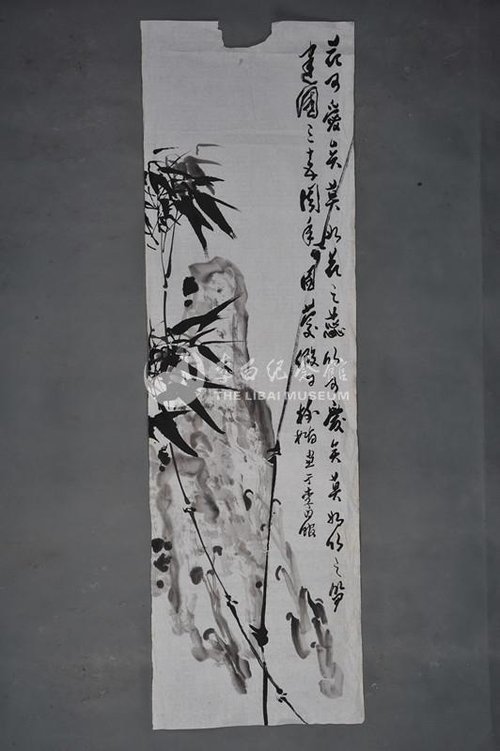 花可爱矣莫如花之蕊竹可爱矣莫如竹之笋
建国三十周年国庆
画于李白馆
李白纪念馆
THE LIBAI MUSEUM